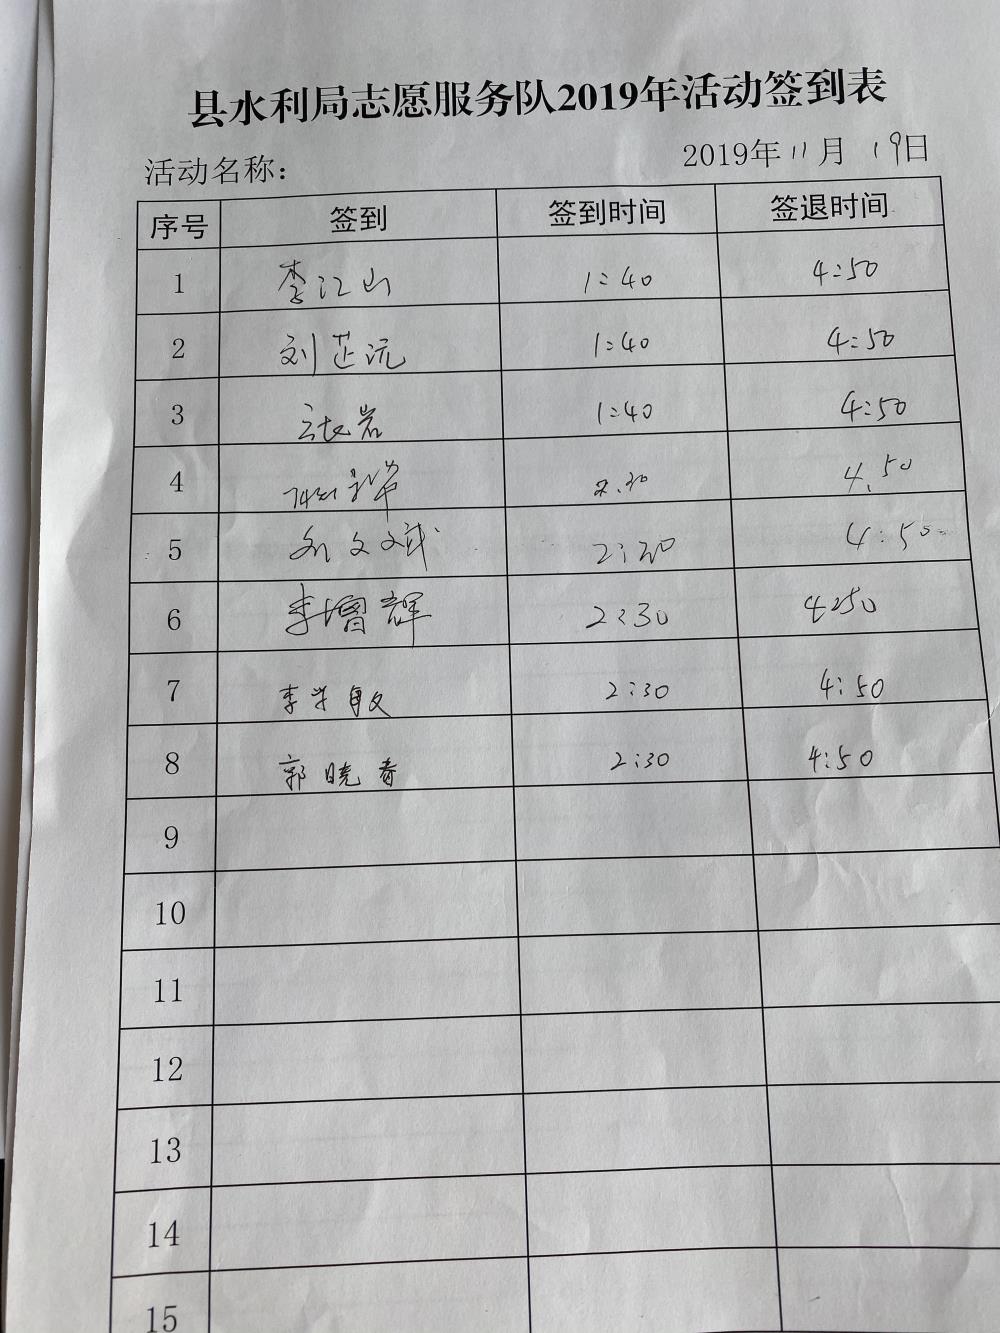 县水利局志愿服务队2019年活动签到表
活动名称： 2019年11月19日
序号 签到 签到时间 签退时间
1 李江山 1:40 4:50
2 刘芷沅 1:40 4:50
3 岩 1:40 4:50
4 4.50
5 刘文斌 2:20 4:50
6 李增辉 2:30 4:50
7 李学敏 2:30 4:50
8 郭晓青 2:30 4:50
9
10
11
12
13
14
15